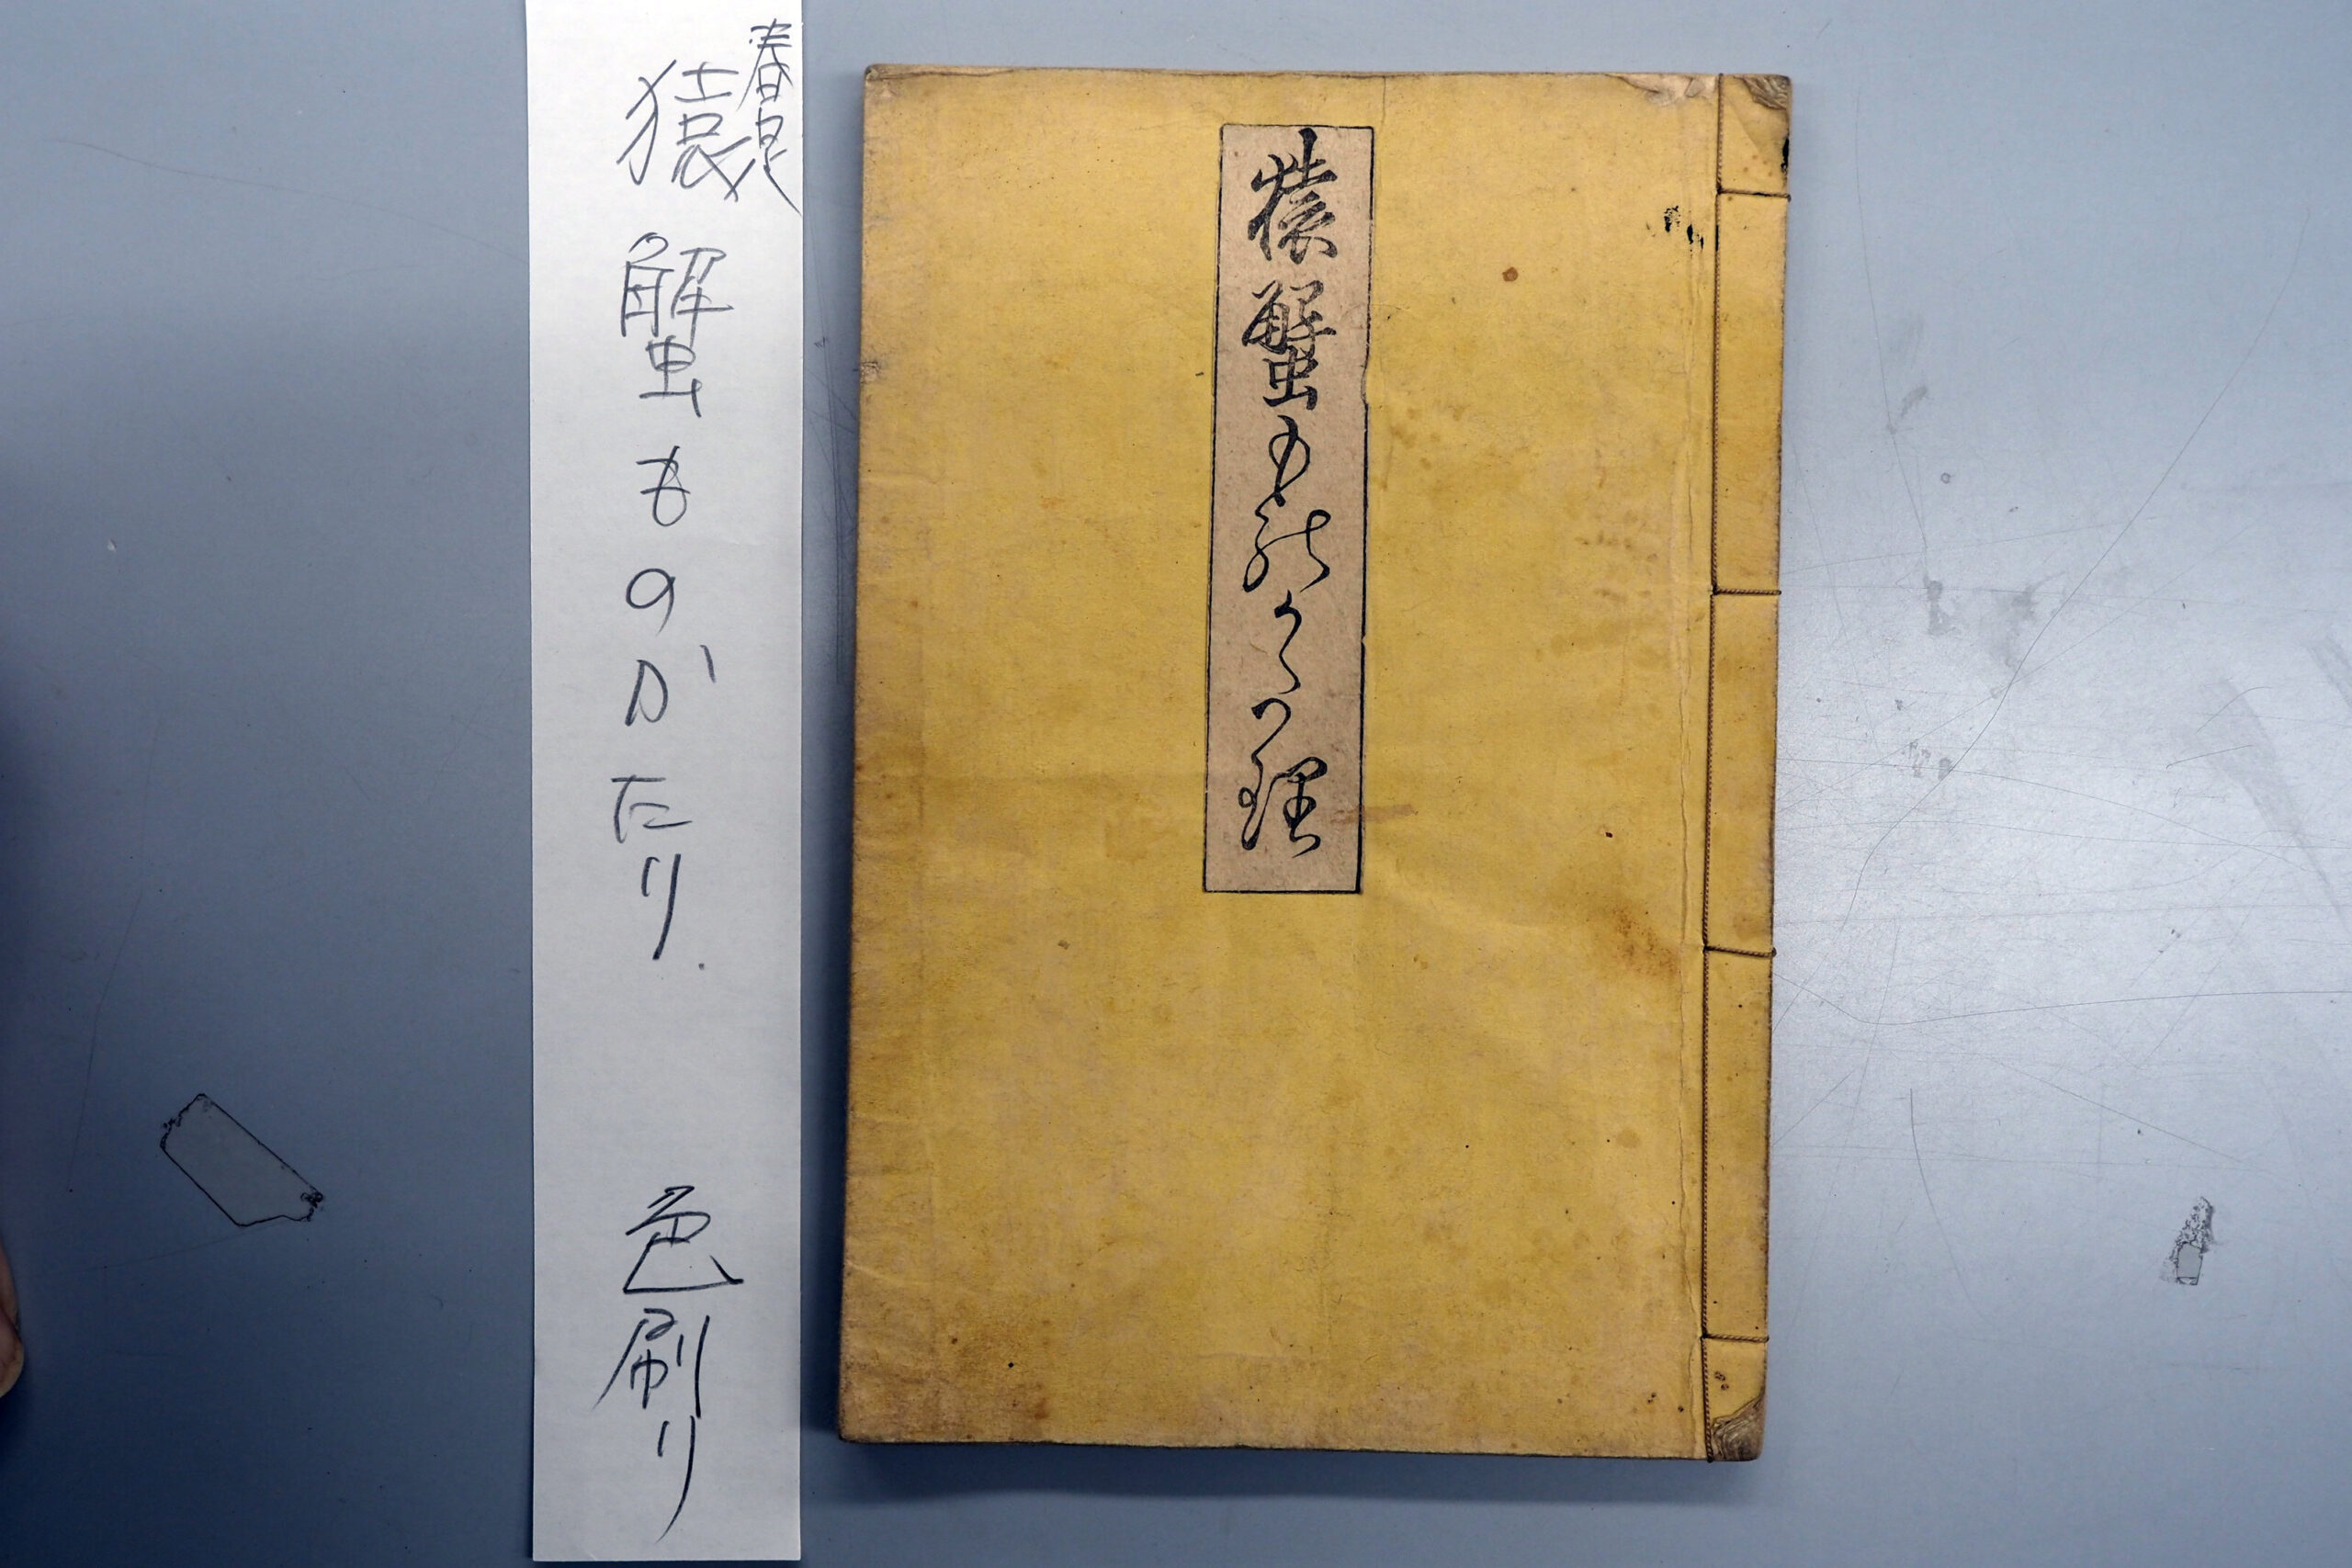 猿蟹ものかた理
猿蟹ものがたり
色刷り